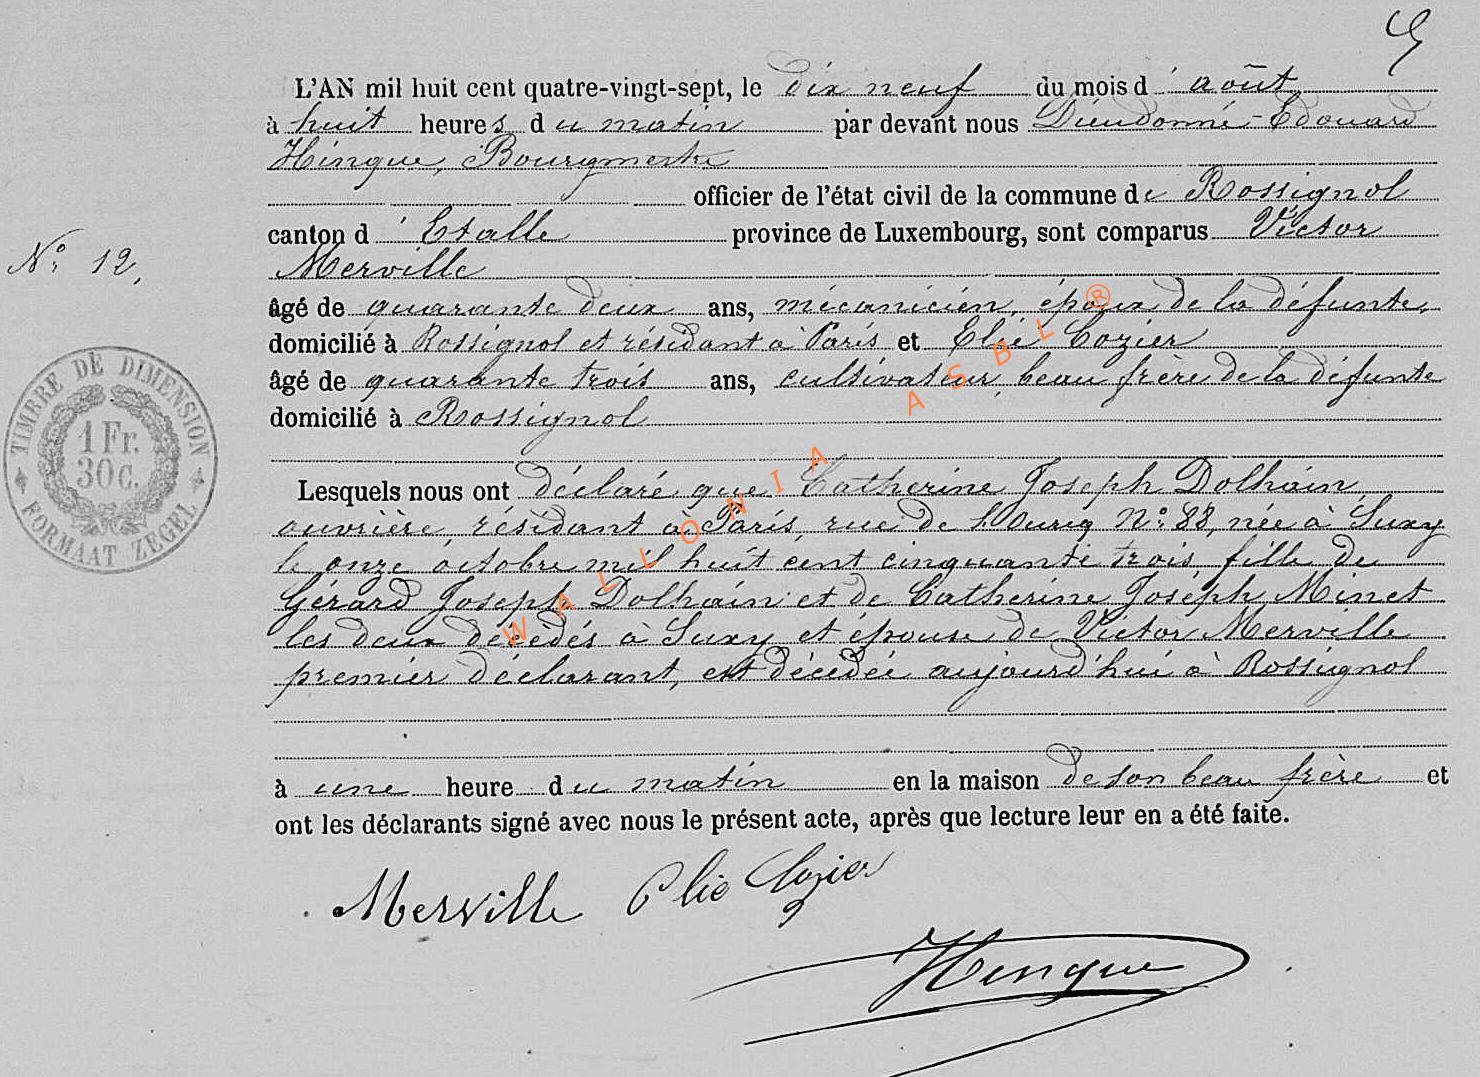 L'AN mil huit cent quatre-vingt-sept, le dix neuf du mois d'août
à huit heures du matin par devant nous Dieudonné-Edouard
Hinque, Bourgmestre
officier de l'état civil de la commune de Rossignol
canton d'Etalle province de Luxembourg, sont comparus Victor
Merville
âgé de quarante deux ans, mécanicien, époux de la défunte,
domicilié à Rossignol et résidant à Paris et Elie Cozier
âgé de quarante trois ans, cultivateur, beau frère de la défunte
domicilié à Rossignol
Lesquels nous ont déclaré que Catherine Joseph Dolhain,
ouvrière, résidant à Paris, rue de l'Ourcq N° 88, née à Suxy
le onze octobre mil huit cent cinquante trois fille de
Gérard Joseph Dolhain et de Catherine Joseph Minet
les deux décédés à Suxy et épouse de Victor Merville
premier déclarant, est décédée aujourd'hui à Rossignol
à une heure du matin en la maison de son beau frère et
ont les déclarants signé avec nous le présent acte, après que lecture leur en a été faite.
Merville Elie Cozier
Hinque
N° 12,
TIMBRE DE DIMENSION
1 Fr.
30 c.
FORMAAT ZEGEL
WALLONIA ASBL ®